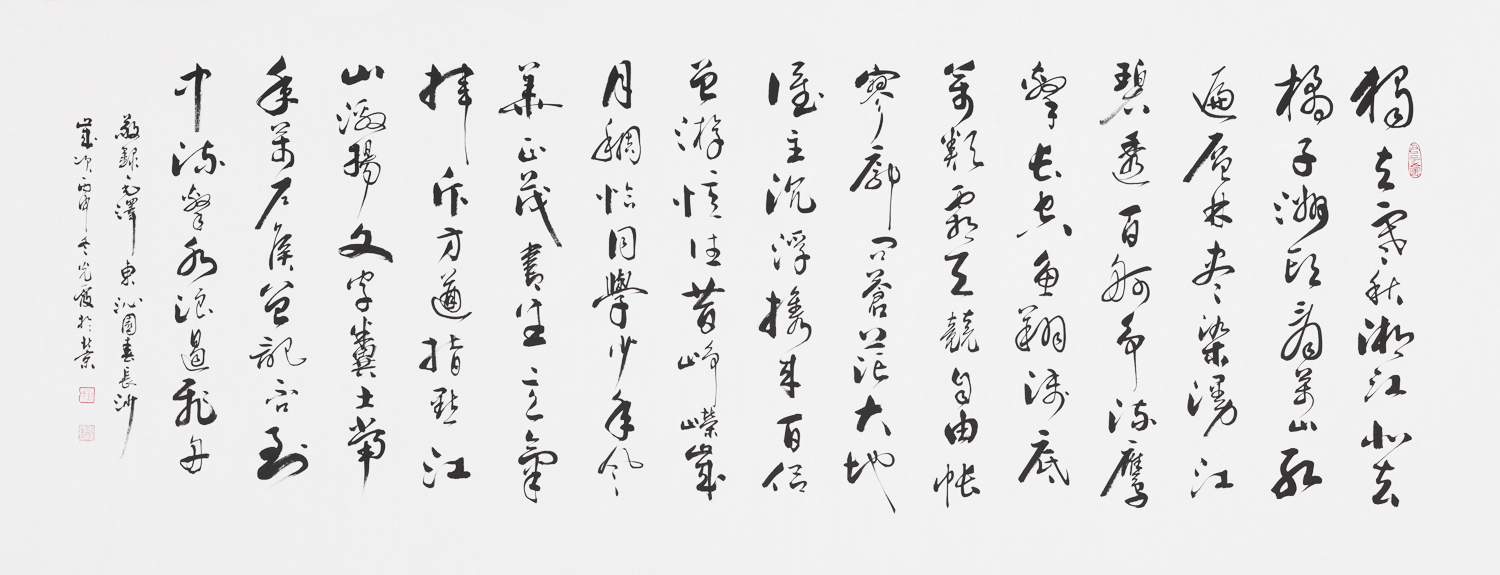 獨立寒秋湘江北去
橘子洲頭看萬山紅
遍層林盡染漫江
碧透百舸爭流鷹
擊長空魚翔淺底
萬類霜天競自由悵
寥廓問蒼茫大地
誰主沉浮攜來百侶
曾游憶往昔崢嶸歲
月稠恰同學少年風
華正茂書生意氣
揮斥方遒指點江
山激揚文字糞土當
年萬戶侯曾記否到
中流擊水浪遏飛舟
敬錄毛澤東沁園春長沙
歲次丙申冬光霞於